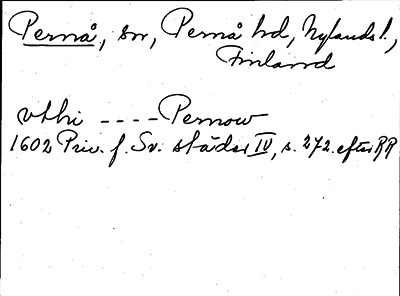 Pernå, sn, Pernå hd, Nylands l.,
Finland
vthi ---- Pernow
1602 Priv. f. Sv. städer IV, s. 272. efter RR